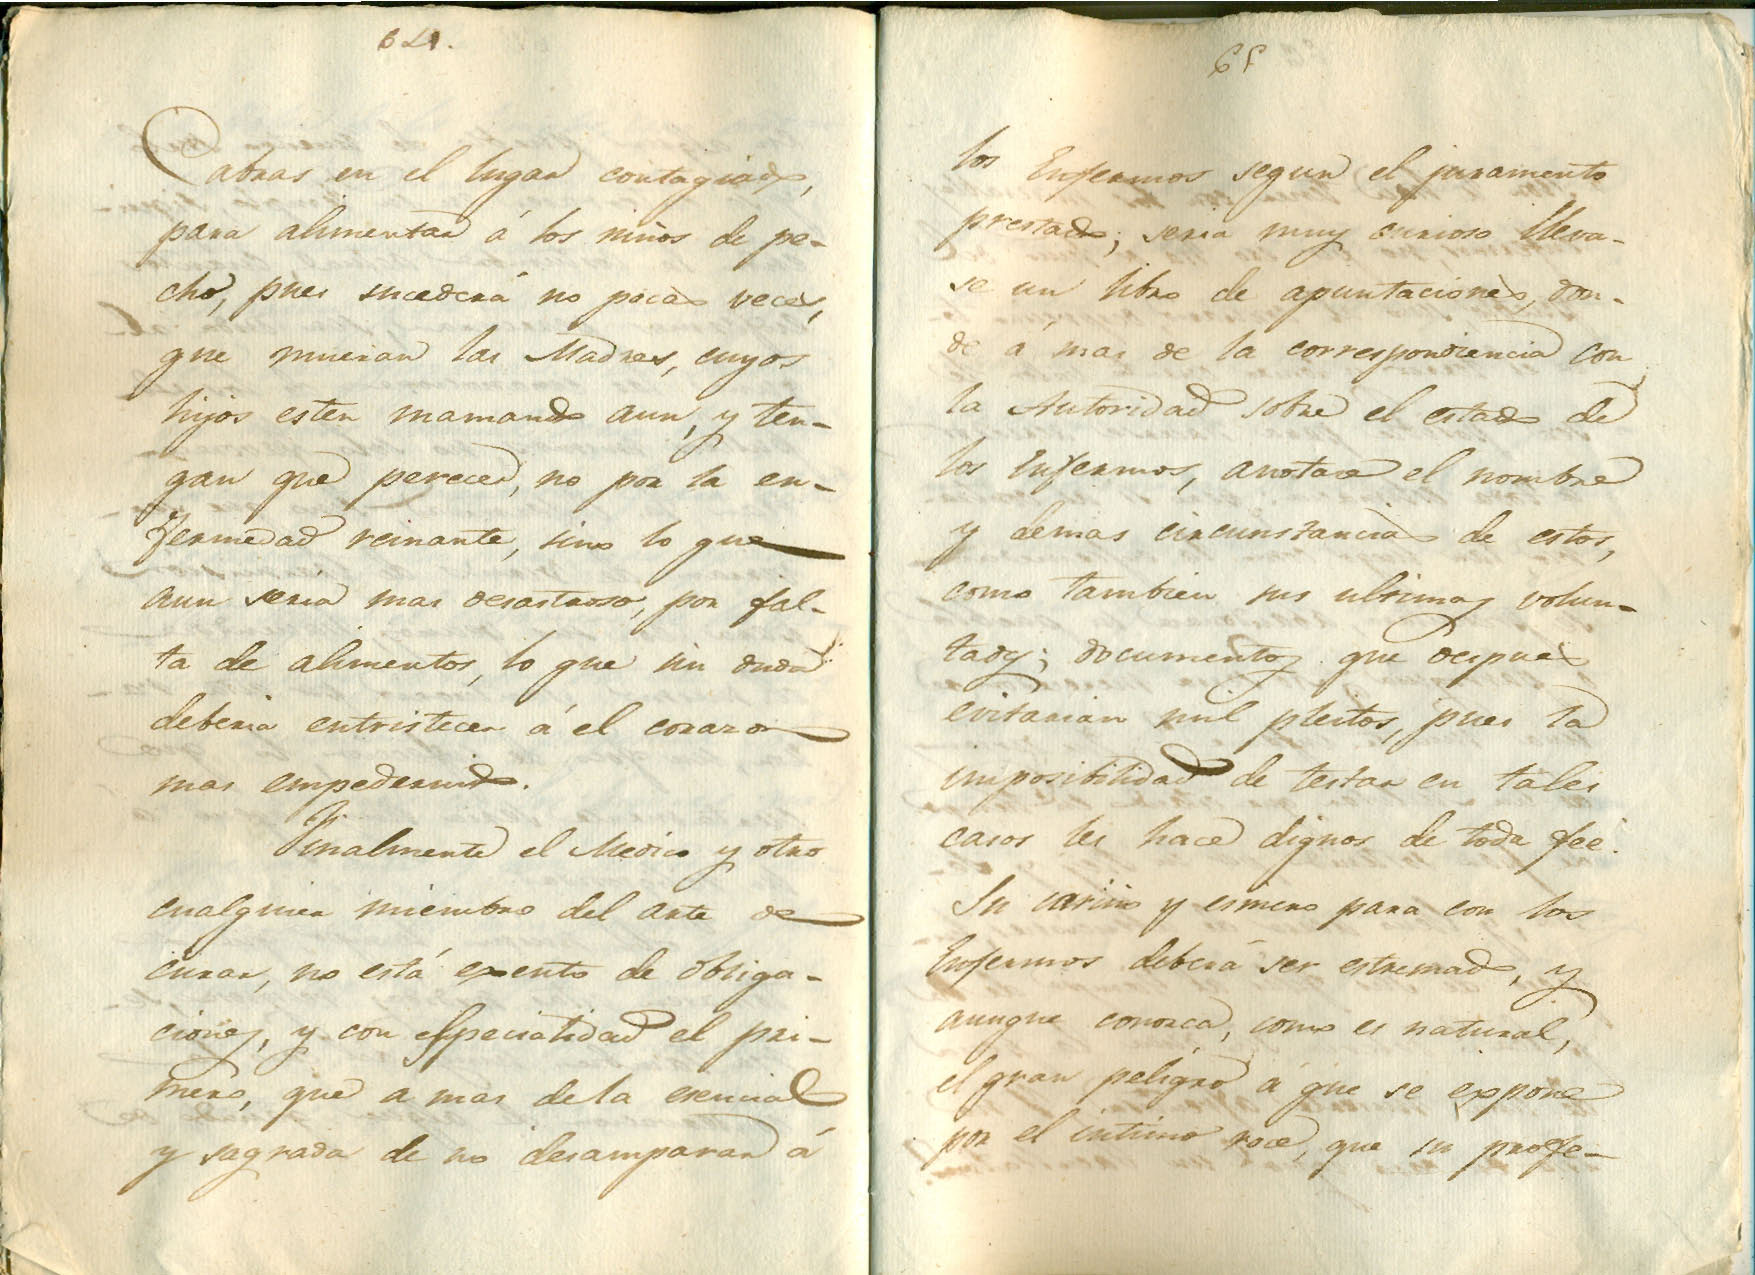 64.
Cabras en el lugar contagiado,
para alimentar á los niños de pe-
cho, pues sucederá no pocas veces,
que mueran las Madres, cuyos
hijos esten mamando aun, y ten-
gan que perecer, no por la en-
fermedad reinante, sino lo que
aun seria mas desastroso, por fal-
ta de alimentos, lo que sin duda
deberia entristecer á el corazon
mas empedernido.
Finalmente el Medico y otro
cualquier miembro del arte de
curar, no está exento de obliga-
ciones, y con especialidad el pri-
mero, que a mas de la esencial
y sagrada de no desamparar á
65
los Enfermos segun el juramento
prestado; seria muy curioso lleva-
se un libro de apuntaciones, don-
de á mas de la correspondencia con
la Autoridad sobre el estado de
los Enfermos, anotase el nombre
y demas circunstancias de estos,
como tambien sus ultimas volun-
tades; documentos que despues
evitarian mil pleitos, pues la
imposibilidad de testar en tales
casos les hace dignos de toda feé.
Su cariño y esmero para con los
Enfermos deberá ser estremado, y
aunque conozca, como es natural,
el gran peligro á que se expone
por el intimo roce, que su profe-